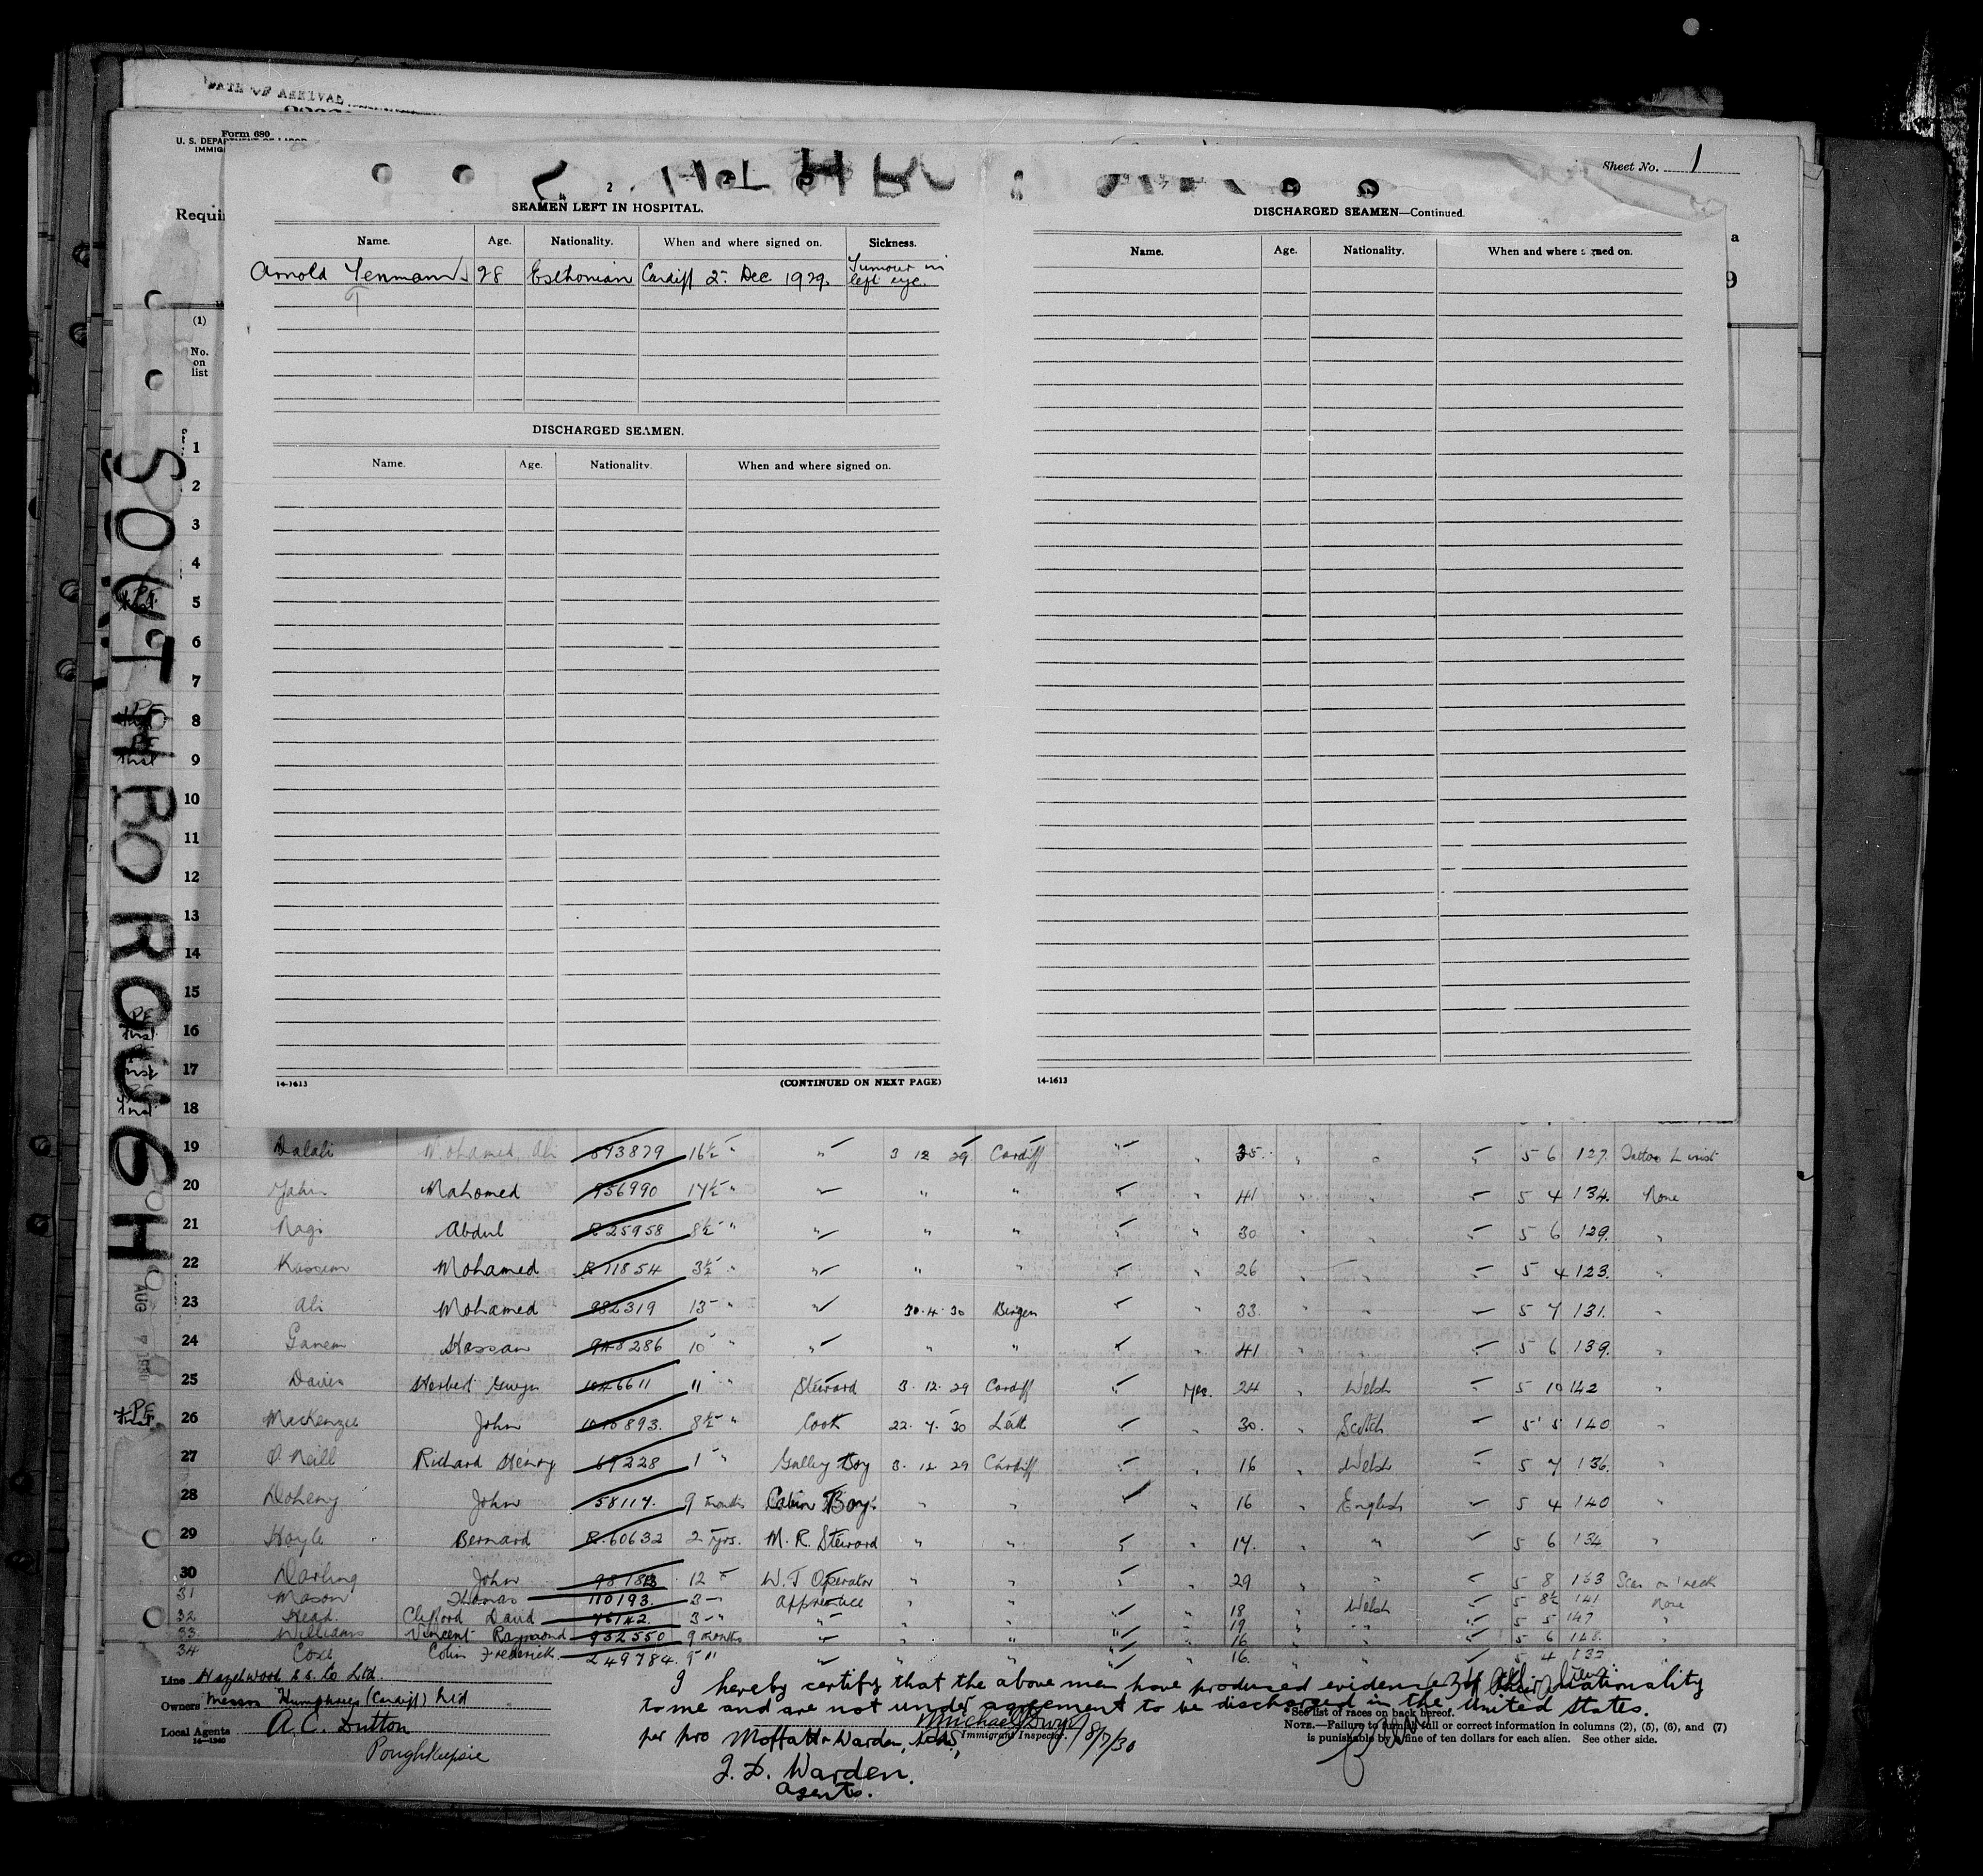 DATE OF ARRIVAL
Form 680
U. S. DEPARTMENT OF LABOR
IMMIG
Requir
Sheet No. 1
2
SEAMEN LEFT IN HOSPITAL.
Name. Age. Nationality. When and where signed on. Sickness.
Arnold 28 Esthonian Cardiff 2. Dec 1929. Tumour in left eye.
DISCHARGED SEAMEN.
Name. Age. Nationality. When and where signed on.
14-1613 (CONTINUED ON NEXT PAGE)
DISCHARGED SEAMEN—Continued.
Name. Age. Nationality. When and where signed on.
14-1613
SOUTHBOROUGH
(1)
No. on list
1
2
3
4
5
6
7
8
9
10
11
12
13
14
15
16
17
18
19 Dalali Mohamed Ali 893879 16½ " " 3 12 29 Cardiff " " 35. " " 5 6 127. Tattoo L wrist
20 Mahomed 956990 17½ " " " " 41 " " 5 4 134. None
21 Nagi Abdul R 25958 8½ " " " " 30 " " 5 6 129. "
22 Kassem Mohamed R 11854 3½ " " " " 26 " " 5 4 123. "
23 Ali Mohamed 982319 13 " " 30.4.30 Bergen " 33. " " 5 7 131. "
24 Ganem Hassan 948286 10 " " " " 41 " " 5 6 139. "
25 Davies Herbert Gwyn 1046611 11 " Steward 3.12.29 Cardiff yes. 24 " Welsh 5 10 142 "
26 MacKenzie John 893. 8½ " Cook 22.7.30 Leith " 30. " Scotch 5 5 140 "
27 O'Neill Richard Henry 69228 1 " Galley Boy 3.12.29 Cardiff " 16 " Welsh 5 7 136. "
28 Doheny John 58117. 9 months Cabin Boy. " " " 16 " English 5 4 140 "
29 Hoyle Bernard R.60632 2 yrs. M. R. Steward " " " 17. " " 5 6 134 "
30 Darling John 12 " W. T Operator " " " 29 " " 5 8 153 Scar on neck
31 Mason Thomas 110193. 3 " Apprentice " " " 18 " Welsh 5 8½ 141 None
32 Head. Clifford David 46142. 3 " " " " " 19 " " 5 5 147 "
33. Williams Vincent Raymond 932550 9 months " " " " 16 " " 5 6 148. "
34 Cox Colin Frederick. 249784. 9 " " " " " 16. " " 5 4 132
Line Hazelwood S.S. Co Ltd.
Owners Messrs Humphries (Cardiff) Ltd
Local Agents A. C. Dutton
14—1240
Poughkeepsie
I hereby certify that the above men have produced evidence of their nationality
to me and are not under agreement to be discharged in the United States.
per pro Moffatt & Warden, Ltd.,
J. D. Warden.
Agents.
Immigrant Inspector.
8/7/30
*See list of races on back hereof.
NOTE.—Failure to furnish full or correct information in columns (2), (5), (6), and (7)
is punishable by a fine of ten dollars for each alien. See other side.